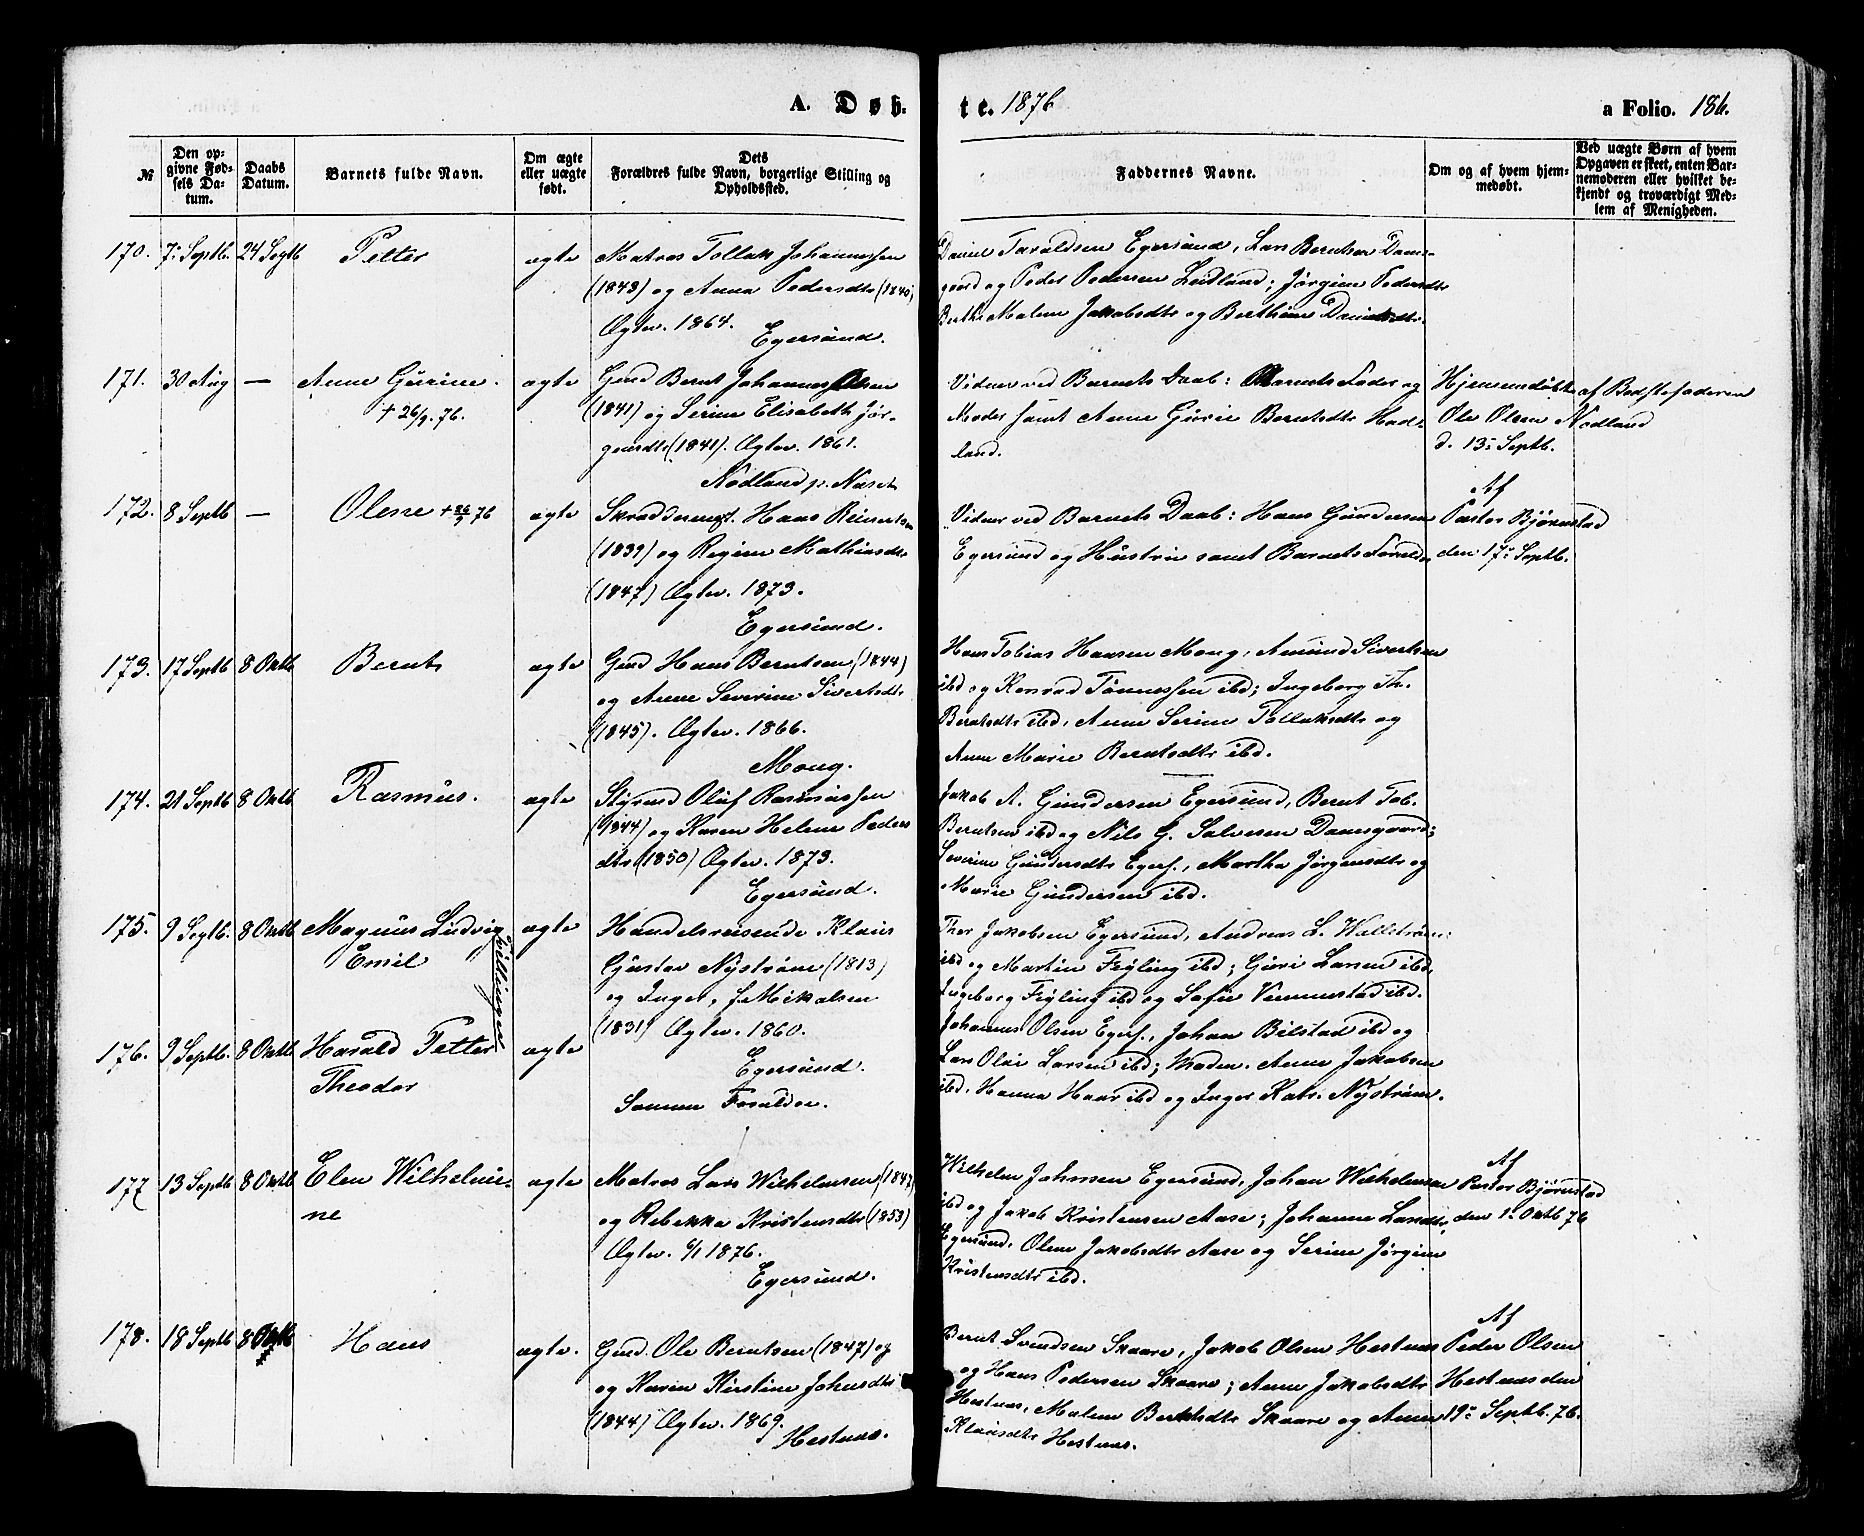 A. Døb.
te. 1876
a Folio. 186.
№
Den op-
givne Fød-
sels Da-
tum.
Daabs
Datum.
Barnets fulde Navn.
Om ægte
eller uægte
født.
Dets
Forældres fulde Navn, borgerlige Stilling og
Opholdssted.
Faddernes Navne.
Om og af hvem hjem-
medøbt.
Ved uægte Børn af hvem
Opgaven er skeet, enten Bar-
nemoderen eller hvilket be-
kjendt og troværdigt Med-
lem af Menigheden.
170. 7: Septb. 24 Septb Petter ægte
Matros Tollak Johannessen
(1843) og Anna Pedersdtr (1840)
Ægtev. 1864.
Egersund.
Daniel Taraldsen Egersund, Lars Berntsen Dams-
gård og Peder Pedersen Leidland; Jørgine Pedersdtr
Berthe Malene Jakobsdtr og Berthine Danielsdtr.
171. 30 Aug — Anne Gurine. ægte
+ 26/9. 76.
Gmd Bernt Johannes Olsen
(1841) og Serine Elisabeth Jør-
gensdtr (1841). Ægtev. 1861.
Nodland p. Næset
Vidner ved Barnets Daab: Barnets Fader og
Moder samt Anne Gurie Berntsdtr Nod-
land.
Hjemmedøbt af Bedstefaderen
Ole Olsen Nodland
d. 13: Septb.
172. 8 Septb — Olene + 26/9 76 ægte
Skræddermst. Hans Reinertsen
(1839) og Regine Mathiasdtr
(1847) Ægtev. 1873.
Egersund.
Vidner ved Barnets Daab: Hans Gundersen
Egersund og Hustru samt Barnets Forældre
Af
Pastor Bjørnstad
den 17: Septb.
173. 17 Septb 8 Oktb Bernt ægte
Gmd Hans Berntsen (1844)
og Anne Severine Sivertsdtr
(1845). Ægtev. 1866.
Mong.
Hans Tobias Hansen Mong, Amund Sivertsen
ibd og Konrad Tønnessen ibd; Ingeborg Th.
Berntsdtr ibd, Anne Serine Tollaksdtr og
Anne Marie Berntsdtr ibd.
174. 21 Septb 8 Oktb Rasmus. ægte
Styrmd Oluf Rasmussen
(1844) og Karen Helene Peders
dtr (1850) Ægtev. 1873.
Egersund.
Jakob A. Gundersen Egersund, Bernt Tob.
Berntsen ibd og Nils G. Salvesen Damsgaard;
Severine Gundersdtr Egers., Martha Jørgensdtr og
Marie Gundersen ibd.
175. 9 Septb. 8 Oktb Magnus Ludvig ægte
Emil
Tvillinger
Handelsreisende Klaus
Gustav Nystrøm (1813)
og Inger, f. Mikalsen
(1831) Ægtev. 1860.
Egersund.
Thor Jakobsen Egersund, Andreas L. Wallstrøm
ibd og Martin Feyling ibd; Guri Larsen ibd,
Ingeborg Feyling ibd og Sofie Vemmestad ibd.
176. 9 Septb. 8 Oktb Harald Petter ægte
Theodor
Samme Forældre.
Johannes Olsen Egers., Johan Bilstad ibd og
Lars Olai Larsen ibd; Maden. Anne Jakobsen
ibd. Hanna Haar ibd og Inger Katr. Nystrøm.
177 13 Septb 8 Oktb Elen Wilhelmi- ægte
ne
Matros Lars Wilhelmsen (1847)
og Rebekka Kristensdtr (1853)
Ægtev. 6/1 1876.
Egersund.
Wilhelm Johnsen Egersund, Johan Wilhelmsen
ibd og Jakob Kristensen Aase; Johanne Larsdtr,
Egersund, Olene Jakobsdtr Aase og Serine Jørgine
Kristensdtr ibd.
Af
Pastor Bjørnstad
den 1: Oktb 76
178. 18 Septb 8 Oktb Hans ægte.
Gmd. Ole Berntsen (1847) og
og Karen Kirstine Johnsdtr
(1844) Ægtev. 1869.
Hestnæs.
Bernt Svendsen Skaare, Jakob Olsen Hestnæs
og Hans Pedersen Skaare; Anne Jakobsdtr
Hestnæs, Malene Berntsdtr Skaare og Anne
Klausdtr Hestnæs.
Af
Peder Olsen
Hestnæs den
19: Septb. 76.